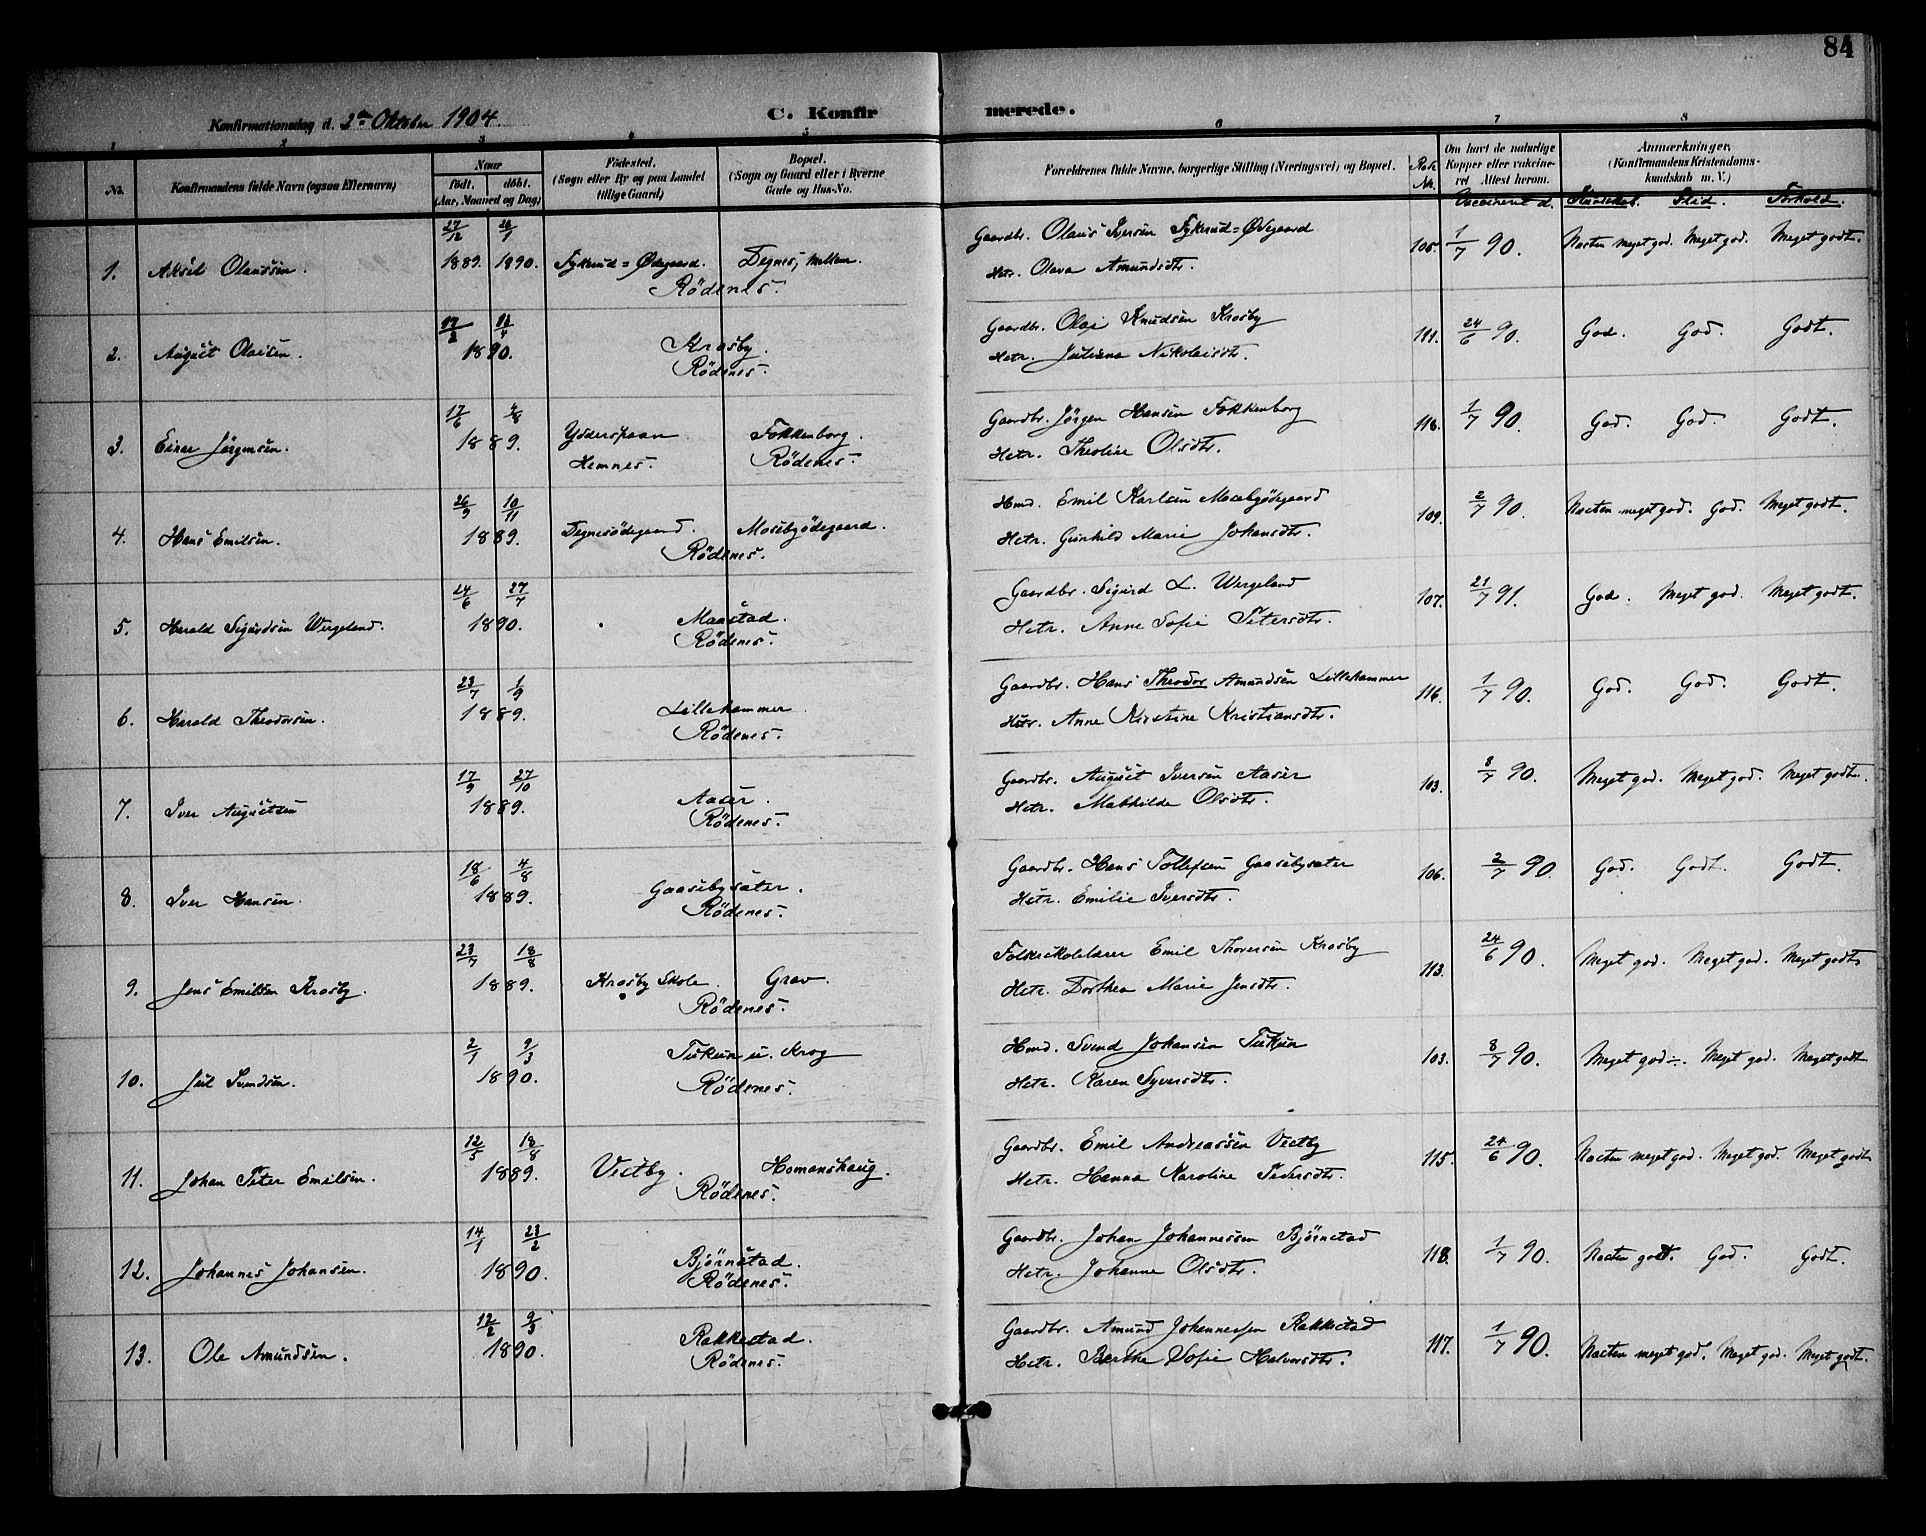 84
Konfirmationsdag d. 2den Oktober 1904. C. Konfirmerede.
1 2 3 4 5 6 7 8
No. Konfirmandens fulde Navn (ogsaa Efternavn) Naar født. døbt. (Aar, Maaned og Dag) Fødested. (Sogn eller By og paa Landet tillige Gaard) Bopæl. (Sogn og Gaard eller i Byerne Gade og Hus-No. Forældrenes fulde Navne, borgerlige Stilling (Næringsvei) og Bopæl. Om havt de naturlige Kopper eller vakcineret Attest herom. Anmærkninger. (Konfirmandens Kristendomskundskab m. V.)
Vaccineret d. Kundskab. Flid. Forhold.
27/12 1/1 Gaardbr. Olaus Iversen Sykerud=Ødegaard
1. Aksel Olaussen. 1889. 1890. Sykerud=Ødegaard. Degnes, mellem. 105. 1/7 90. Næsten meget god. Meget god. Meget godt.
Rödenes. Hstr. Olava Amundsdtr.
17/2 4 Gaardbr. Olai Knudsen Krosby
2. August Olaisen. 1890. Krosby. 111. 24/6 90. God. God. Godt.
Rödenes. Hstr. Juliana Nikolaisdtr.
17/6 4/8 Gaardbr. Jörgen Hansen Fokkenborg
3. Einar Jörgensen. 1889. Ydderspaan Fokkenborg. 118. 1/7 90. God. God. Godt.
Hemnes. Rödenes. Hstr. Theoline Olsdtr.
26/9 10/11 Hmd. Emil Karlsen Mosebyödegaard
4. Hans Emilsen. 1889. Degnesödegaard. Mosebyödegaard. 109. 2/7 90. Næsten meget god. God. Meget godt.
Rödenes. Hstr. Gunhild Marie Johansdtr.
24/6 27/7 Gaardbr. Sigurd L. Wergeland
5. Harald Sigurdsen Wergeland. 1890. Maastad. 107. 21/7 91. God. Meget god. Meget godt.
Rödenes. Hstr. Anne Sofie Petersdtr.
23/7 1/9 Gaardbr. Hans Theodor Amundsen Lillehammer
6. Harald Theodorsen. 1889. Lillehammer. 116. 1/7 90. God. God. Godt.
Rödenes. Hstr. Anne Kirstine Kristiansdtr.
17/9 27/10 Gaardbr. August Iversen Aaser
7. Iver Augustsen 1889. 103. 8/7 90. Meget god. Meget god. Meget godt.
Rödenes. Hstr. Mathilde Olsdtr.
18/6 4/8 Gaardbr. Hans Tollefsen Gaasebysæter
8. Iver Hansen. 1889. Gaasebysæter. 106. 2/7 90. God. Godt. Godt.
Rödenes. Hstr. Emilie Iversdtr.
23/7 18/8 Folkeskolelærer Emil Thoresen Krosby
9. Jens Emilsen Krosby. 1889. Krosby Skole. Grav. 113. 24/6 90. Meget god. Meget god. Meget godt
Rödenes. Hstr. Dorthea Marie Jensdtr.
2/1 9/3 Tukun u. Krog Hmd. Svend Johansen Tukun
10. Juel Svendsen. 1890. 103. 8/7 90. Meget god ÷. Meget god. Meget godt
Rödenes. Hstr. Karen Syversdtr.
12/5 18/8 Gaardbr. Emil Andreassen Vestby
11. Johan Peter Emilsen. 1889. Vestby. Homanshaug. 115. 24/6 90. Næsten meget god. Meget god. Meget godt
Rödenes. Hstr. Hanna Karoline Pedersdtr.
14/1 23/2 Gaardbr. Johan Johannessen Björnstad
12. Johannes Johansen. 1890. Björnstad. 118. 1/7 90. Næsten godt. God. Godt.
Rödenes. Hstr. Johanne Olsdtr.
12/2 9/3 Gaardbr. Amund Johannessen Rakkestad
13. Ole Amundsen. 1890. Rakkestad. 117. 1/7 90. Næsten meget god. Meget god. Meget godt.
Rödenes. Hstr. Berthe Sofie Halvorsdtr.